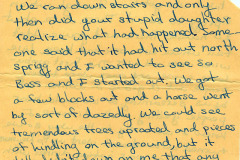 We ran down stairs and only
then did your stupid daughter
realize what had happened. Some
one said that it had hit out north
sprigg and I wanted to see so
Bess and I started out. We got
a few blocks out and a horse went
by sort of dazedly. We could see
tremendous trees uprooted and pieces
of kindling on the ground, but it
didn't down on me that any